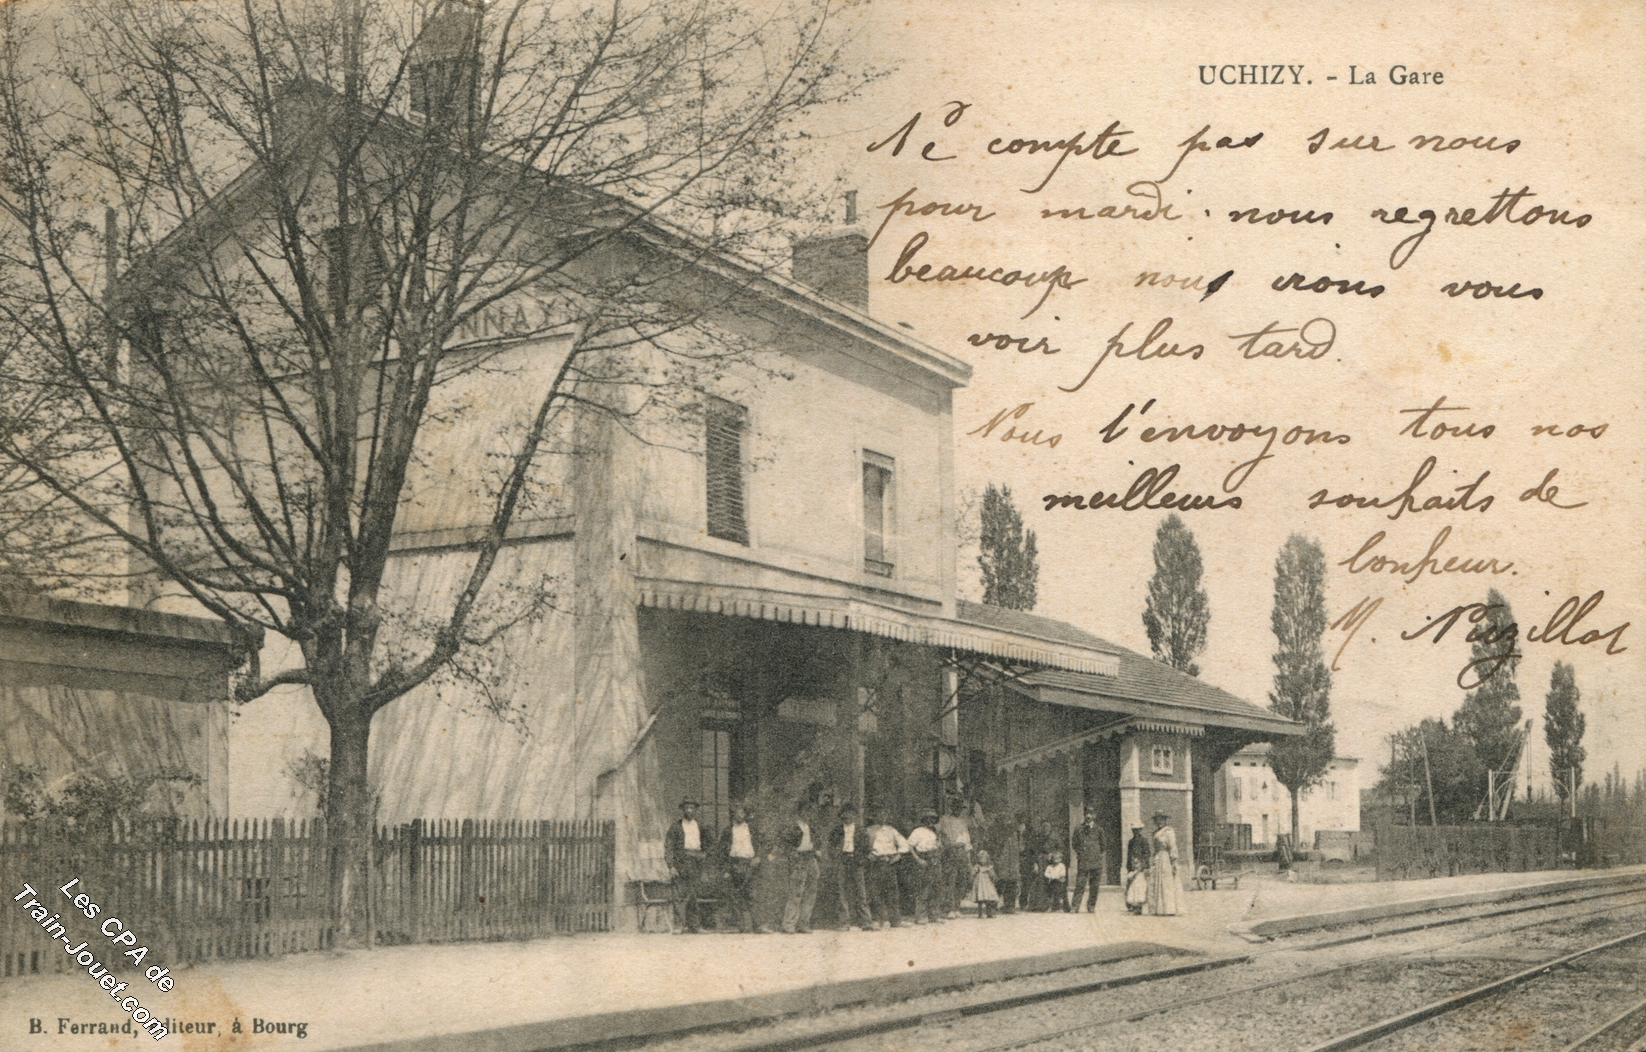 UCHIZY. - La Gare
Ne compte pas sur nous
pour mardi. nous regrettons
beaucoup nous irons vous
voir plus tard.
Nous t'envoyons tous nos
meilleurs souhaits de
bonheur.
M. Nuzillat
NNAY
Les CPA de
Train-Jouet.com
B. Ferrand, Editeur, à Bourg